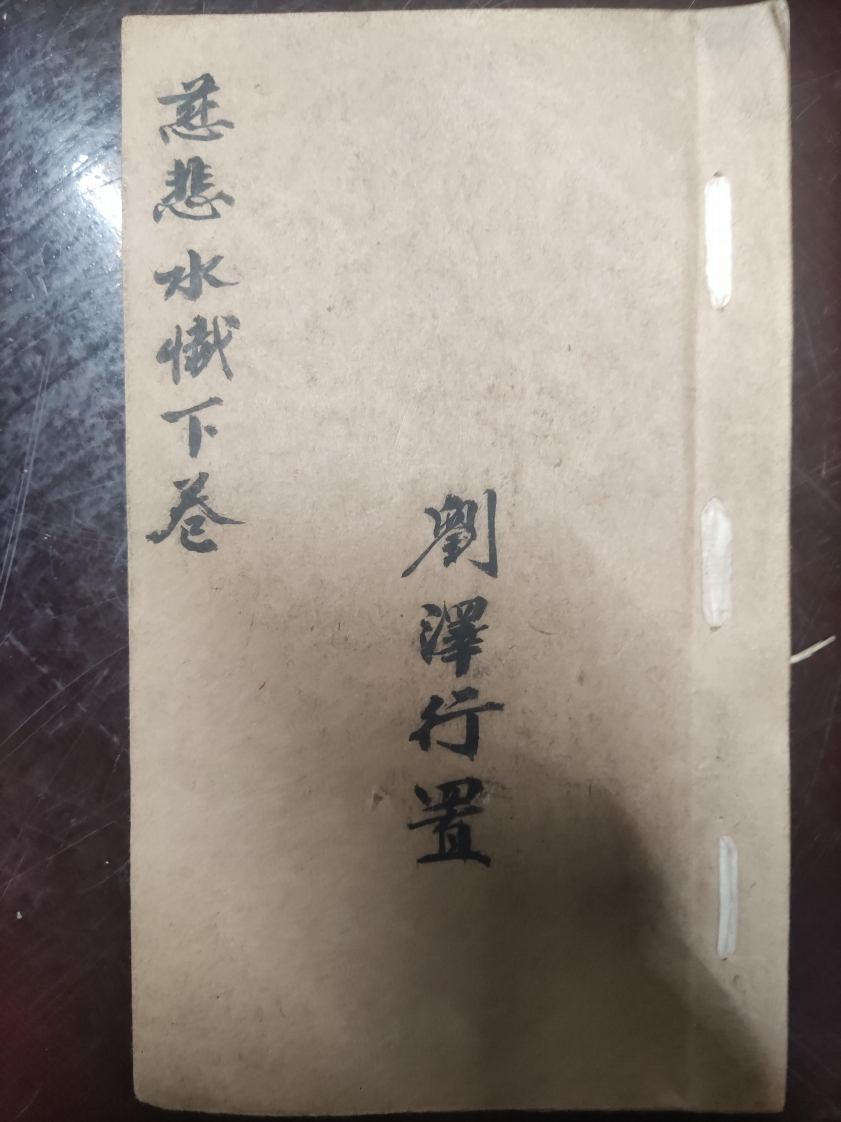 慈悲水懺下卷
劉澤行置